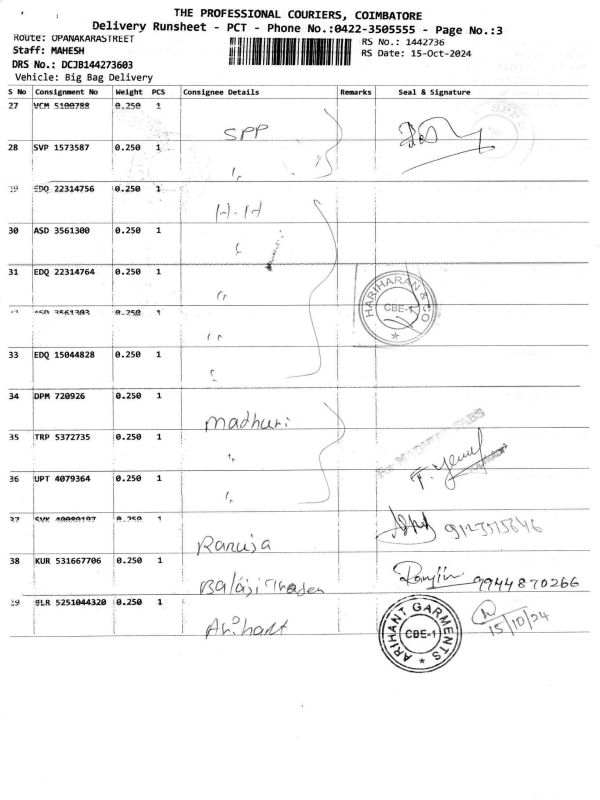 THE PROFESSIONAL COURIERS, COIMBATORE
Delivery Runsheet - PCT - Phone No.:0422-3505555 - Page No.:3
Route: OPANAKARASTREET
RS No.: 1442736
Staff: MAHESH
RS Date: 15-Oct-2024
DRS No.: DCJB144273603
Vehicle: Big Bag Delivery
S No Consignment No Weight PCS Consignee Details Remarks Seal & Signature
27 VCM 5100788 0.250 1 SPP
28 SVP 1573587 0.250 1 "
29 EDQ 22314756 0.250 1 H.H
30 ASD 3561300 0.250 1 "
31 EDQ 22314764 0.250 1 "
HARIHARAN & CO
CBE-1
ASD 3561303 0.250 1 "
33 EDQ 15044828 0.250 1 "
34 DPM 720926 0.250 1 Madhuri
35 TRP 5372735 0.250 1 "
36 UPT 4079364 0.250 1 "
37 SVK 0.250 1
38 KUR 531667706 0.250 1 Balaji 9944870266
5251044320 0.250 1 Arihant
ARIHANT GARMENTS
CBE-1
15/10/24